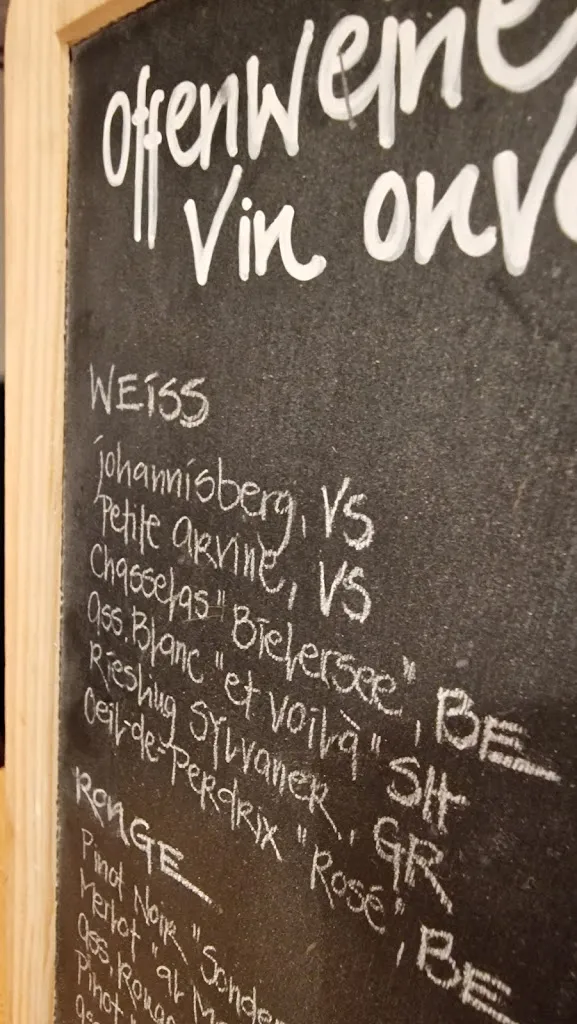 Offenweine
Vin
WEISS
Johannisberg, VS
Petite Arvine, VS
Chasselas "Bielersee", BE
Ass. Blanc "et voilà" SH
Riesling Sylvaner, GR
Oeil-de-Perdrix "Rosé", BE
ROUGE
Pinot Noir
Merlot
Ass. Rouge
Pinot